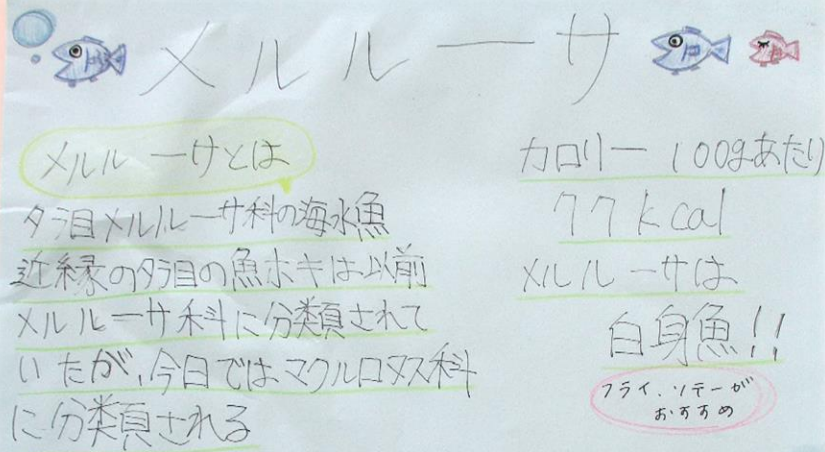 メルルーサ
メルルーサとは
タラ目メルルーサ科の海水魚
近縁のタラ目の魚ホキは以前
メルルーサ科に分類されて
いたが、今日ではマクルロヌス科
に分類される
カロリー 100gあたり
77kcal
メルルーサは
白身魚!!
フライ、ソテーが
おすすめ